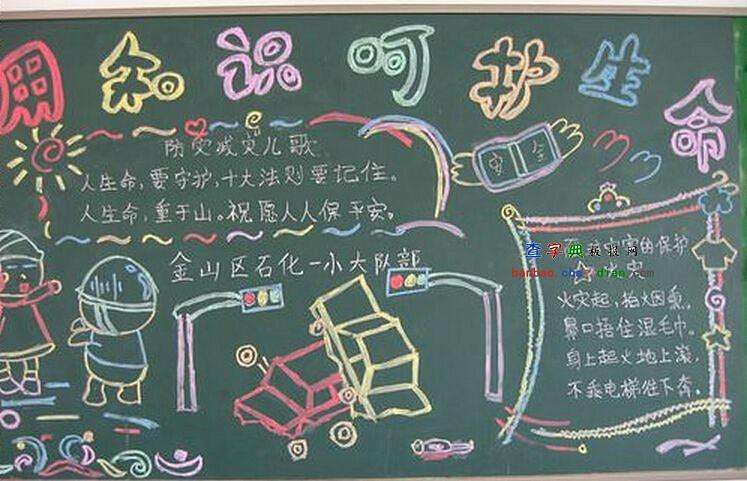 用知识呵护生命
防灾减灾儿歌
人生命，要守护，十大法则要记住。
人生命，重于山。祝愿人人保平安。
金山区石化一小大队部
安全
查字典板报网
banbao.chazidian.com
的保护
火灾起，
鼻口捂住湿毛巾。
身上起火地上滚，
不乘电梯往下奔，